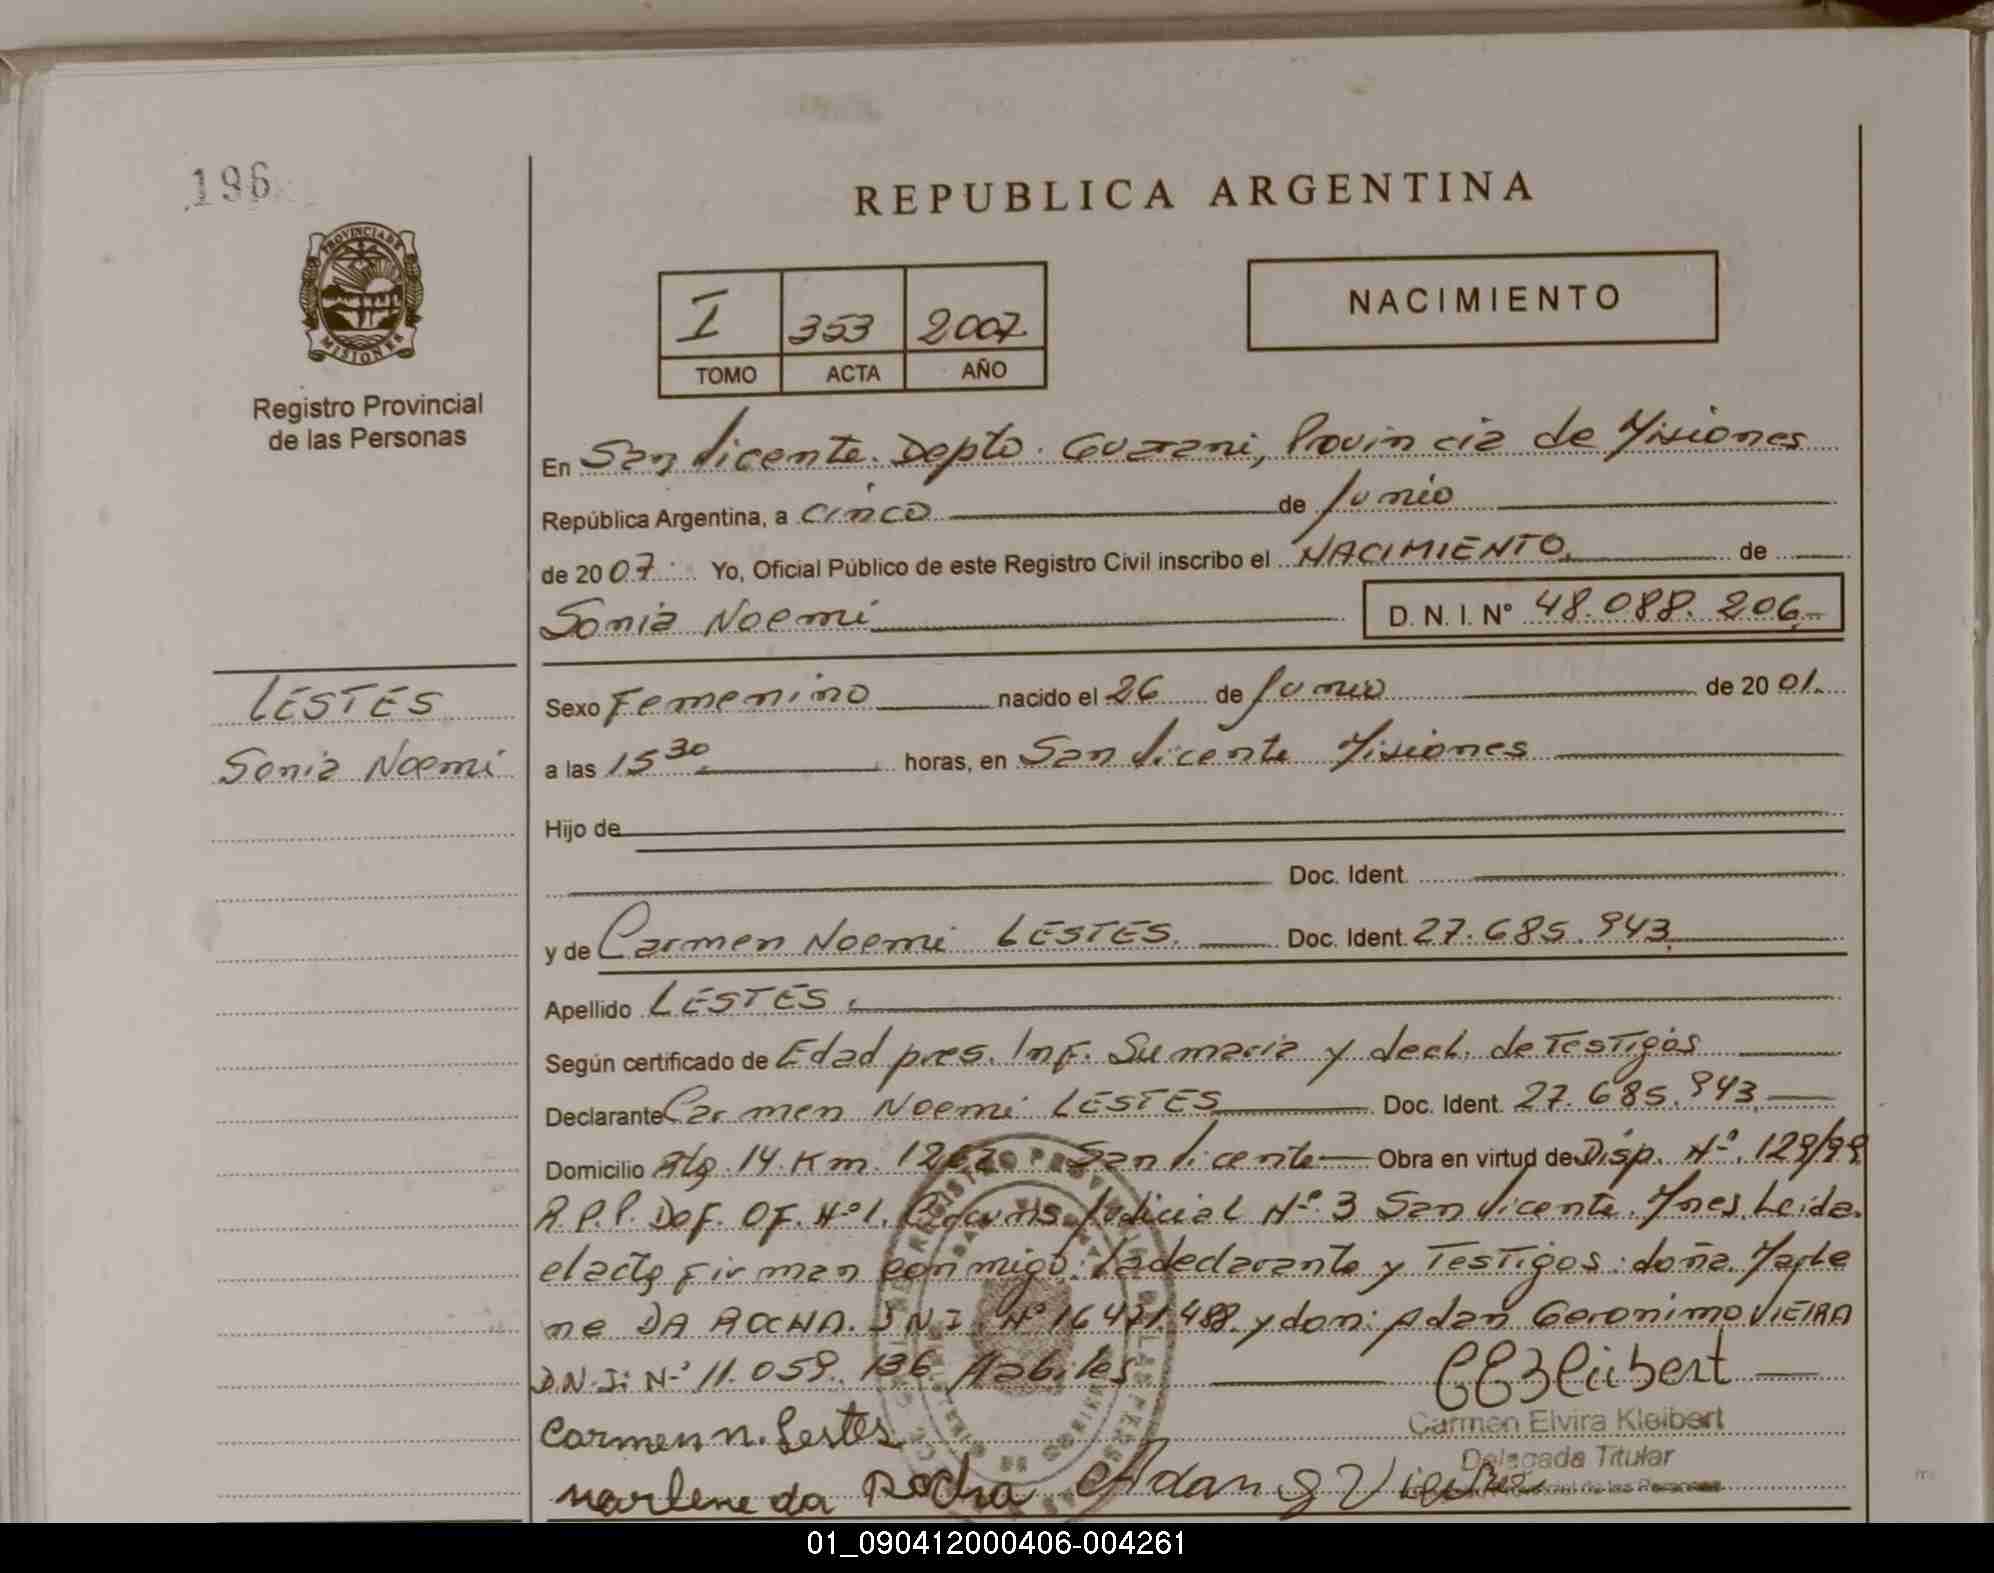 196
REPUBLICA ARGENTINA
PROVINCIA DE
MISIONES
Registro Provincial
de las Personas
I 353 2007
TOMO ACTA AÑO
NACIMIENTO
En San Vicente. Depto. Guarani, Provincia de Misiones
República Argentina, a cinco de Junio
de 2007 Yo, Oficial Público de este Registro Civil inscribo el NACIMIENTO de
Sonia Noemi D. N. I. N° 48.088.206.-
LESTES
Sonia Noemi
Sexo Femenino nacido el 26 de Junio de 2001.
a las 15 30 horas, en San Vicente Misiones
Hijo de
Doc. Ident.
y de Carmen Noemi LESTES. Doc. Ident. 27.685.943.
Apellido LESTES.
Según certificado de Edad pres. Inf. Sumaria y decl. de Testigos
Declarante Carmen Noemi LESTES Doc. Ident. 27.685.943.
Domicilio 14. Km. San Vicente Obra en virtud de Disp. N°. 129/99
R.P.P. Def. Of. N°1. Judicial N°. 3 San Vicente. Leida.
el acta firman conmigo: la declarante y Testigos: doña. Marle
ne DA ROCHA. D N I N° y don: Adan Geronimo VIEIRA
D.N.I: N° 11.059.136. Habiles
Carmen n. Lestes
Carmen Elvira Kleibert
Delegada Titular
marlene da Rocha Adan G Vieira
01_090412000406-004261